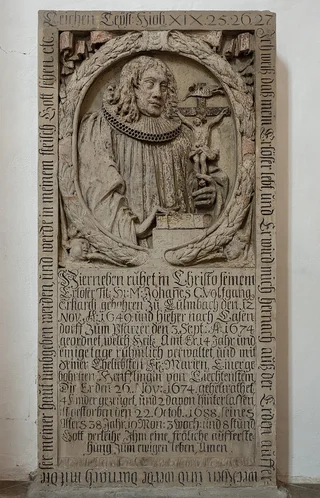 Leichen Text Hiob XIX 25.26.27
Ich weiß daß mein Erlöser lebt, und Er wird mich hernach auß der Erden auff
wecken und werde darnach mit die
ser meiner Haut umbgeben werden und werde in meinem fleisch Gott sehen. etc.
Hierneben ruhet in Christo seinem
Erlöser Tit: Hr: M: Johañes Wolfgang,
gebohren zu Culmbach den 12
Nov. A. 1649 und hieher nach Casen
dorff Zum Pfarrer den 3. Sept. A. 1674
geordnet, welch Amt Er 14 Jahr und
einige tage rühmlich verwaltet, und mit
Eheliebsten Fr. Marien,
bohrnen von
Die Er den Nov. 1674. geheurathet
4 Kinder gezeuget, und 2 davon hinterlassen,
ist gestorben den 22. Octob. 1688. seines
Alters 38 Jahr, Mon: 3 woch: und 8 stund
Gott verleihe Ihm eine fröliche aufferste
hung Zum ewigen leben, Amen.